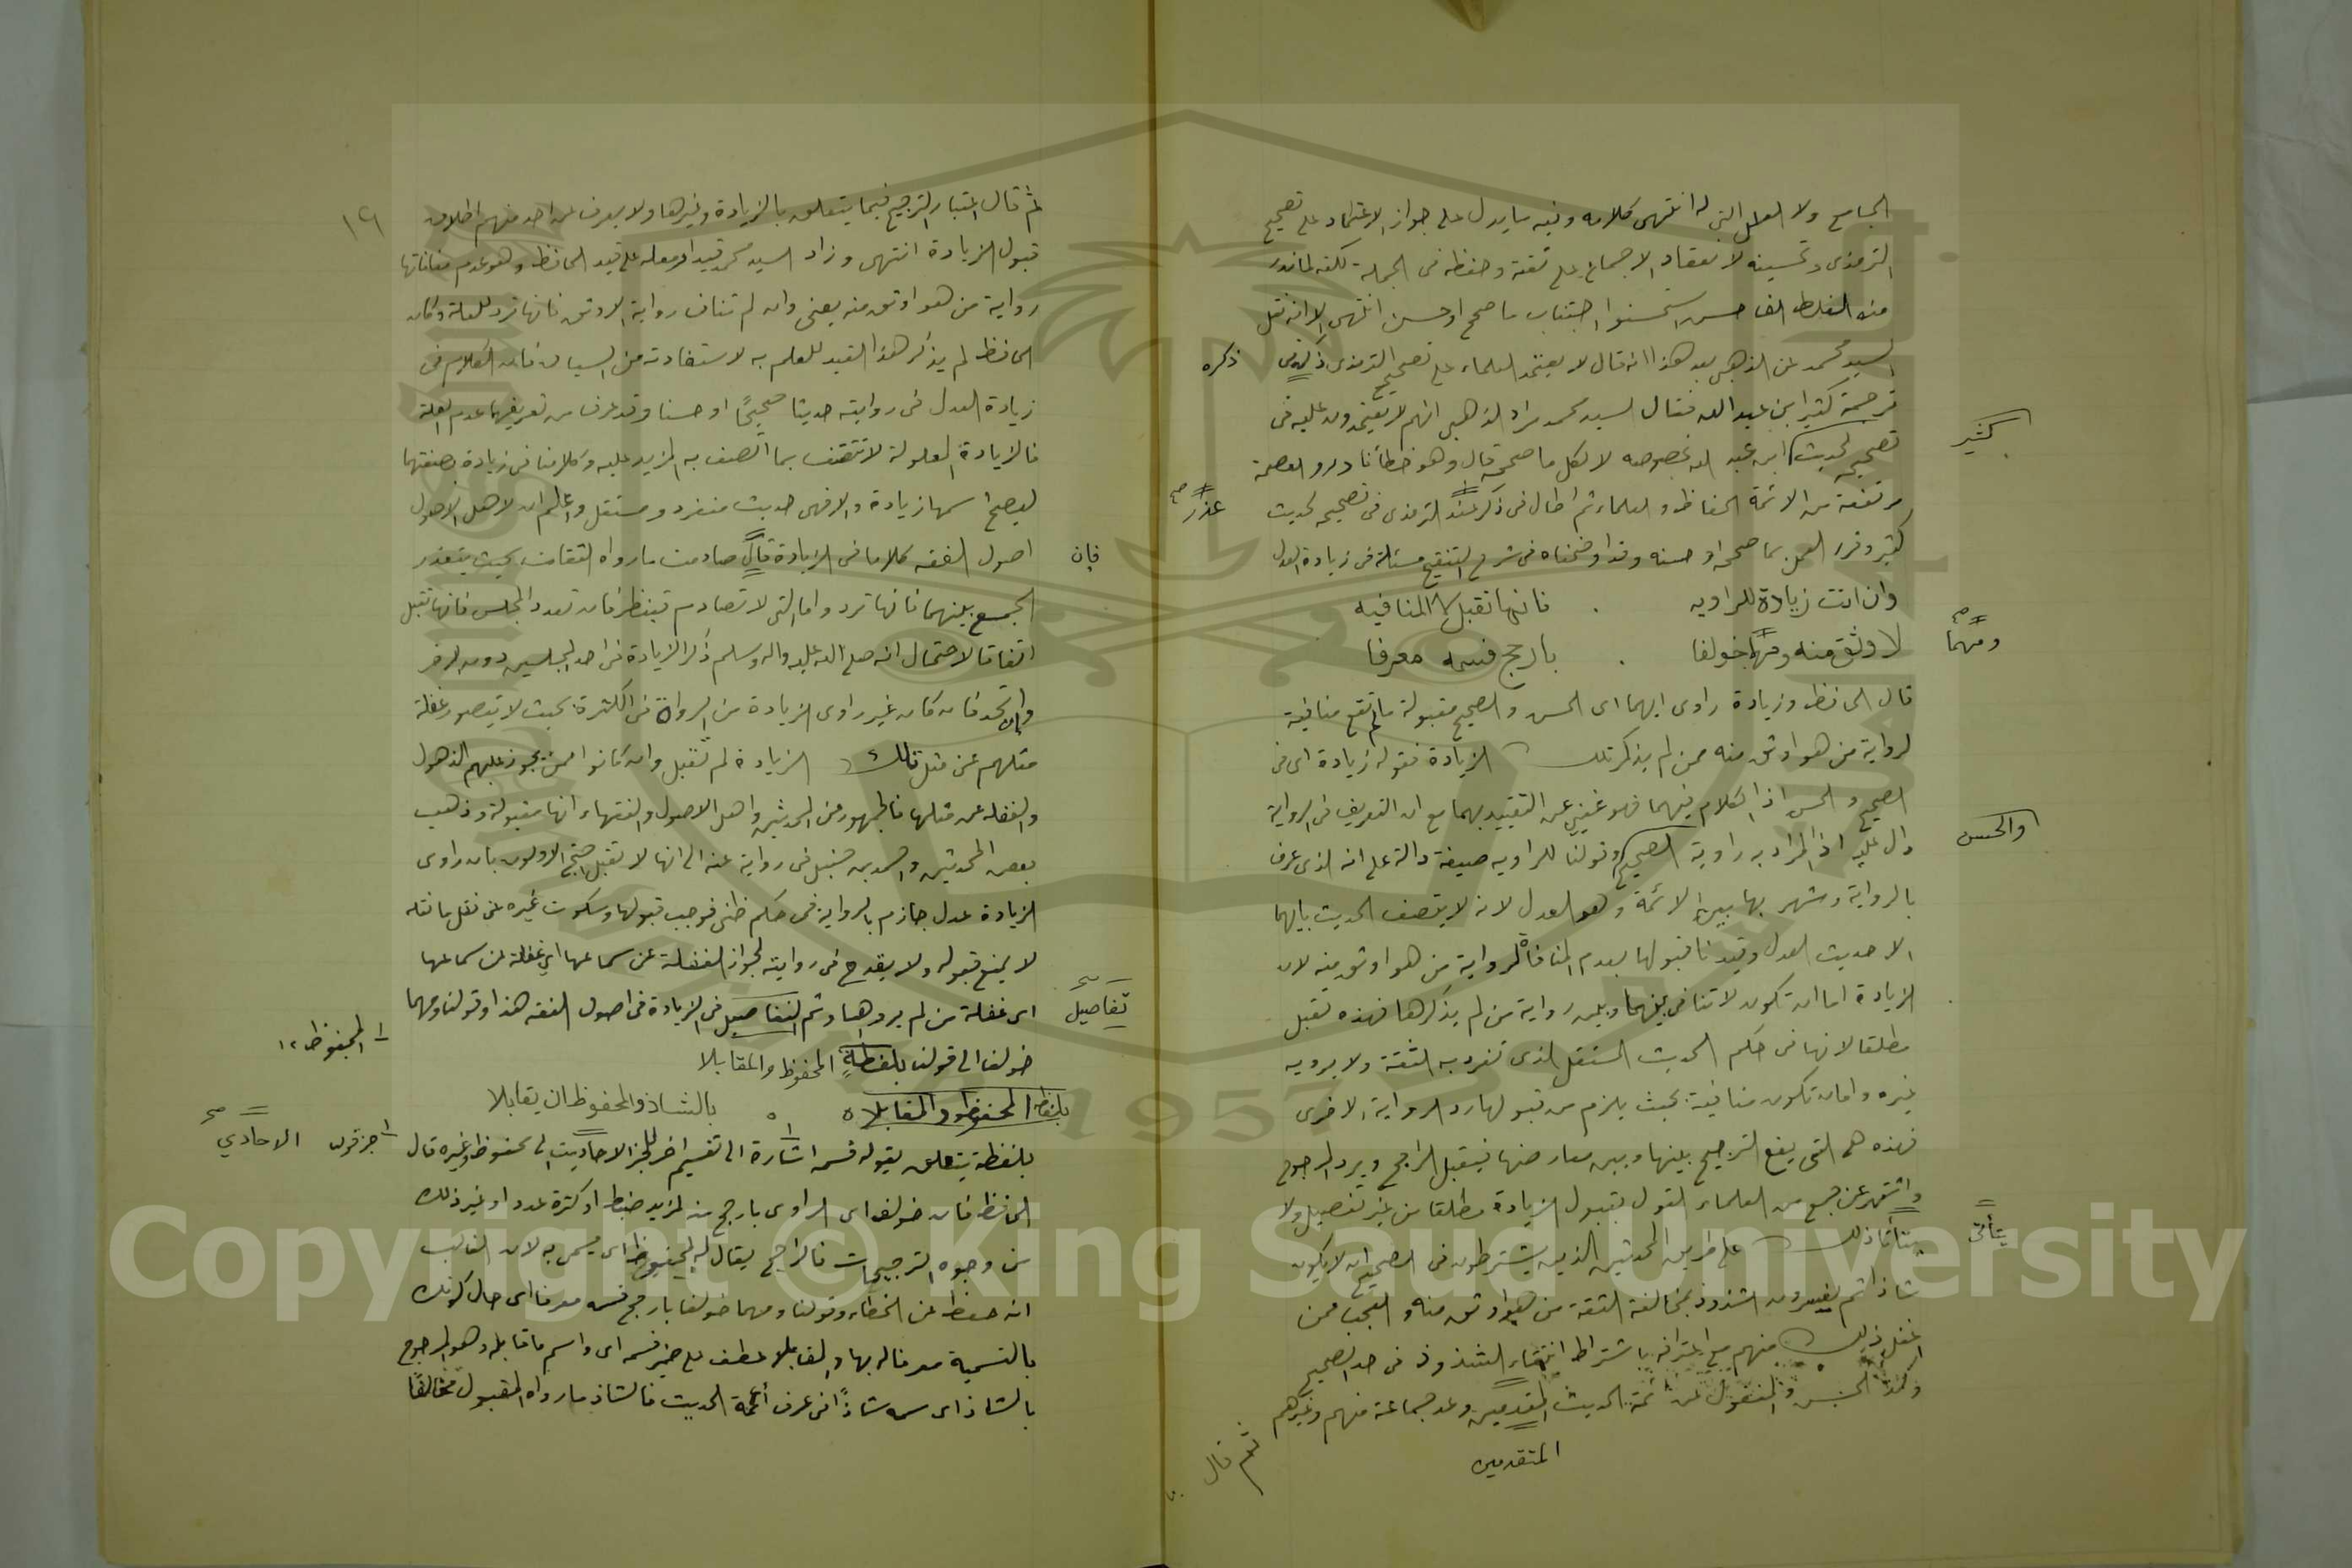 الجامع ولا العلل التي له انتهى كلامه وفيه ما يدل على جواز الاعتماد على تصحيح
الترمذي وتحسينه لانعقاد الاجماع على ثقته وحفظه في الجملة لكنه لما ندر
منه الغلط الفاحش استحسنوا اجتناب ما صحح او حسن انتهى الا انه نقل
السيد محمد عن الذهبي بعد هذا انه قال لا يعتمد العلماء على تصحيح الترمذي ذكره في
ذكره
ترجمة كثير ابن عبد الله فقال السيد محمد مراد الذهبي انهم لا يعتمدون عليه في
كثير
تصحيحه لحديث ابن عبد الله بخصوصه لا لكل ما صححه قال وهو خطأ نادر والعصمة
مرتفعة من الائمة الحفاظ والعلماء ثم اطال في ذكر عند الترمذي في تصحيحه لحديث
عذر صح
كثير وقرر العمل بما صححه او حسنه وقد اوضحناه في شرح التنقيح مسئلة في زيادة العدل
وان اتت زيادة للراويه . فانها تقبل لا المنافيه
لاوثق منه ومهما خولفا . بارجح فسمه معرفا
ومهما صح
قال الحافظ وزيادة راوي ايهما اي الحسن والصحيح مقبولة ما لم تقع منافية
لرواية من هو اوثق منه ممن لم يذكر تلك الزيادة فقوله زيادة اي في
الصحيح والحسن اذ الكلام فيهما فهو غني عن التقييد بهما مع ان التعريف في الرواية
دال عليه اذ المراد به راوية الصحيح وقولنا للراويه صيغة دالة على انه الذي عرف
والحسن
بالرواية وشهر بها بين الائمة وهو العدل لانه لا يتصف الحديث بايهما
الا حديث العدل وقيدنا قبولها بعدم المنافاة لرواية من هو اوثق منه لان
الزيادة اما ان تكون لا تنافي بينها وبين رواية من لم يذكرها فهذه تقبل
مطلقا لانها في حكم الحديث المستقل الذي تفرد به الثقة ولا يرويه
غيره واما ان تكون منافية بحيث يلزم من قبولها رد الرواية الاخرى
فهذه هي التي يقع الترجيح بينها وبين معارضها فيقبل الراجح ويرد المرجوح
واشتهر عن جمع من العلماء القول بقبول الزيادة مطلقا من غير تفصيل ولا
يتأتى ذلك على طريق المحدثين الذين يشترطون في الصحيح ان لا يكون
يتأتى
شاذا ثم يفسرون الشذوذ بمخالفة الثقة من هو اوثق منه والعجب ممن
اغفل ذلك منهم مع اعترافه باشتراط انتفاء الشذوذ في حد الصحيح
وكذا الحسن والمنقول عن ائمة الحديث المتقدمين وعد جماعة منهم وغيرهم
المتقدمين
ثم قال
١٢
ثم قال اعتبار الترجيح فيما يتعلق بالزيادة وغيرها ولا يعرف عن احد منهم اطلاق
قبول الزيادة انتهى وزاد السيد محمد قيدا وجعله على قيد الحافظ وهو عدم منافاتها
رواية من هو اوثق منه يعني وان لم تناف رواية الاوثق فانها ترد للعلة وكان
الحافظ لم يذكر هذا القيد للعلم به لاستفادته من السياق فان الكلام في
زيادة العدل في روايته حديثا صحيحًا او حسنا وقد عرف من تعريفهما عدم العلة
فالزيادة المعلولة لا تتصف بما اتصف به المزيد عليه وكلامنا في زيادة بصفتها
ليصح اسمها زيادة والا فهي حديث منفرد ومستقل واعلم ان لاهل الاصول
اصول الفقه كلاما في الزيادة قال صادمت ما رواه الثقات بحيث يتعذر
فان
الجمع بينهما فانها ترد واما التي لا تصادم فينظر فان تعدد المجلس فانها تقبل
اتفاقا لاحتمال انه صلى الله عليه واله وسلم ذكر الزيادة في احد المجلسين دون الاخر
وان اتحد فان كان غير راوي الزيادة من الرواة في الكثرة بحيث لا يتصور غفلة
مثلهم عن مثل تلك الزيادة لم تقبل وان كانوا ممن يجوز عليهم الذهول
والغفلة عن مثلها فالجمهور من المحدثين واهل الاصول والفقهاء انها مقبولة وذهب
بعض المحدثين واحمد بن حنبل في رواية عنه الى انها لا تقبل احتج الاولون بان راوي
الزيادة عدل جازم بالرواية في حكم ظني فوجب قبولها وسكوت غيره عن نقل ما نقله
لا يمنع قبوله ولا يقدح في روايته لجواز الغفلة عن سماعها اي غفلة عن سماعها
اي غفلة من لم يروها وثم التفاصيل في الزيادة في اصول الفقه هذا وقولنا ومهما
تفاصيل صح
خولفا الى قولنا بلفظة المحفوظ والمقابلا
المحفوظ ١٢
بلفظ المحفوظ والمقابلا ه ه بالشاذ والمحفوظ ان يقابلا
بلفظة يتعلق بقوله فسمه اشارة الى تقسيم اخر للجز الاحاديث الى محفوظ وغيره قال
الاحادي صح
الحافظ فان خولف اي الراوي بارجح منه لمزيد ضبط او كثرة عدد او غير ذلك
من وجوه الترجيحات فالراجح يقال له المحفوظ اي يسمى به لان الغالب
انه حفظ عن الخطاء وقولنا ومهما خولفا بارجح فسمه معرفا اي حال كونك
بالتسمية معرفا له بها والمقابلا عطف على ضمير فسمه اي واسم ما قابله وهو المرجوح
بالشاذ اي سمه شاذًا في عرف أئمة الحديث فالشاذ ما رواه المقبول مخالفًا
Copyright © King Saud University
1957